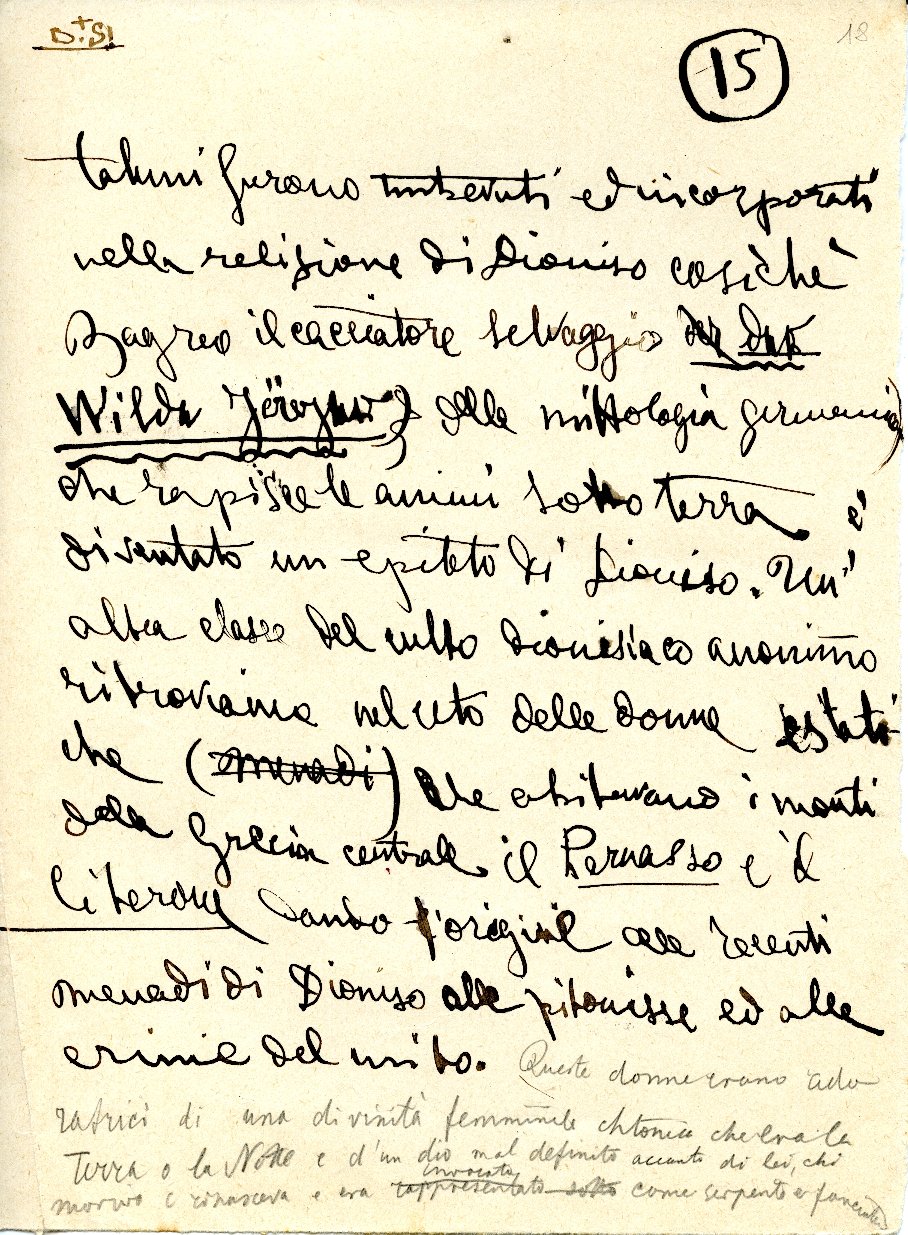 D.+S!
18
15
taluni furono ed incorporati
nella religione di Dioniso cosichè
Zagreo il cacciatore selvaggio
Wilde Jäger) della mitologia germanica
che rapisce le anime sotto terra è
diventato un epiteto di Dioniso. Un'
altra classe del culto dionisiaco anonimo
ritroviamo nel culto delle donne estati
che (menadi) che abitavano i monti
della Grecia centrale il Parnasso e il
Citerone dando l'origine alle recenti
menadi di Dioniso alle pitonisse ed alle
erinie del mito. Queste donne erano ado
ratrici di una divinità femminile chtonica che era la
Terra o la Notte e d'un dio mal definito accanto di lei, chi
invocato
moriva e rinasceva e era rappresentato sotto come serpente e fanciullo